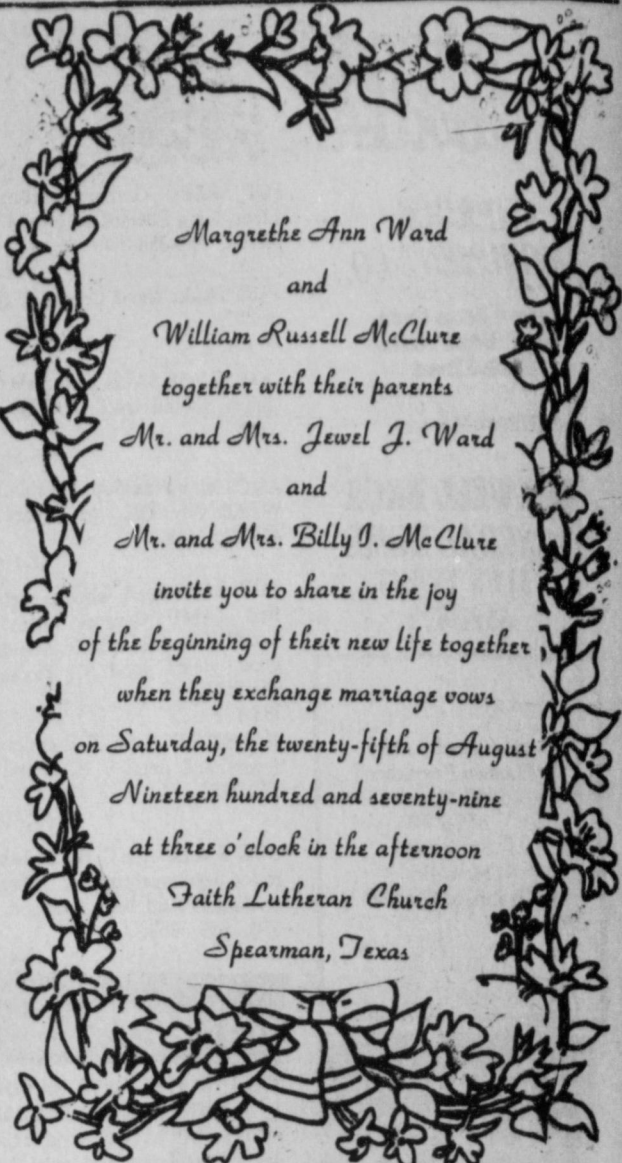 Margrethe Ann Ward
and
William Russell McClure
together with their parents
Mr. and Mrs. Jewel J. Ward
and
Mr. and Mrs. Billy J. McClure
invite you to share in the joy
of the beginning of their new life together
when they exchange marriage vows
on Saturday, the twenty-fifth of August
Nineteen hundred and seventy-nine
at three o'clock in the afternoon
Faith Lutheran Church
Spearman, Texas